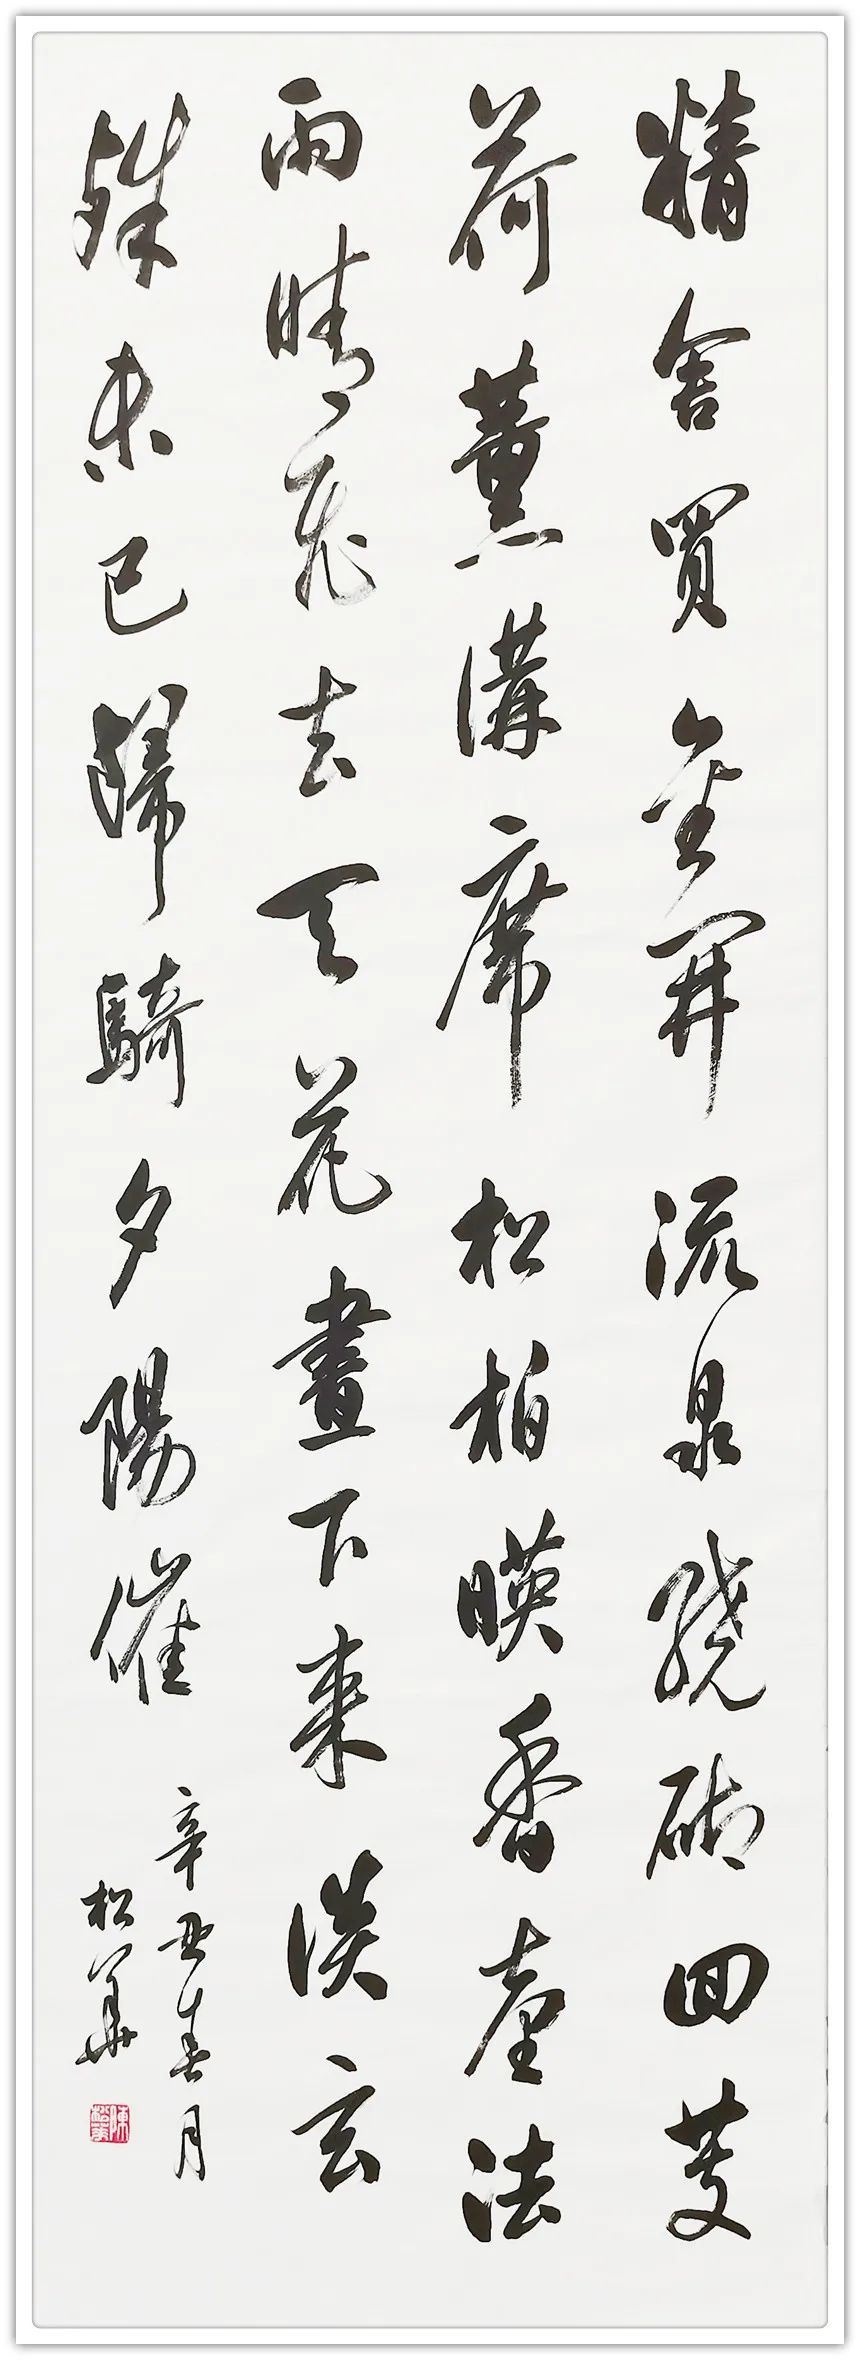 精舍買金開流泉繞砌囬芰
荷薰講席松柏暎香臺法
雨晴飛去天花晝下來談玄
殊未已歸騎夕陽催
辛丑春月
松華
陳松華